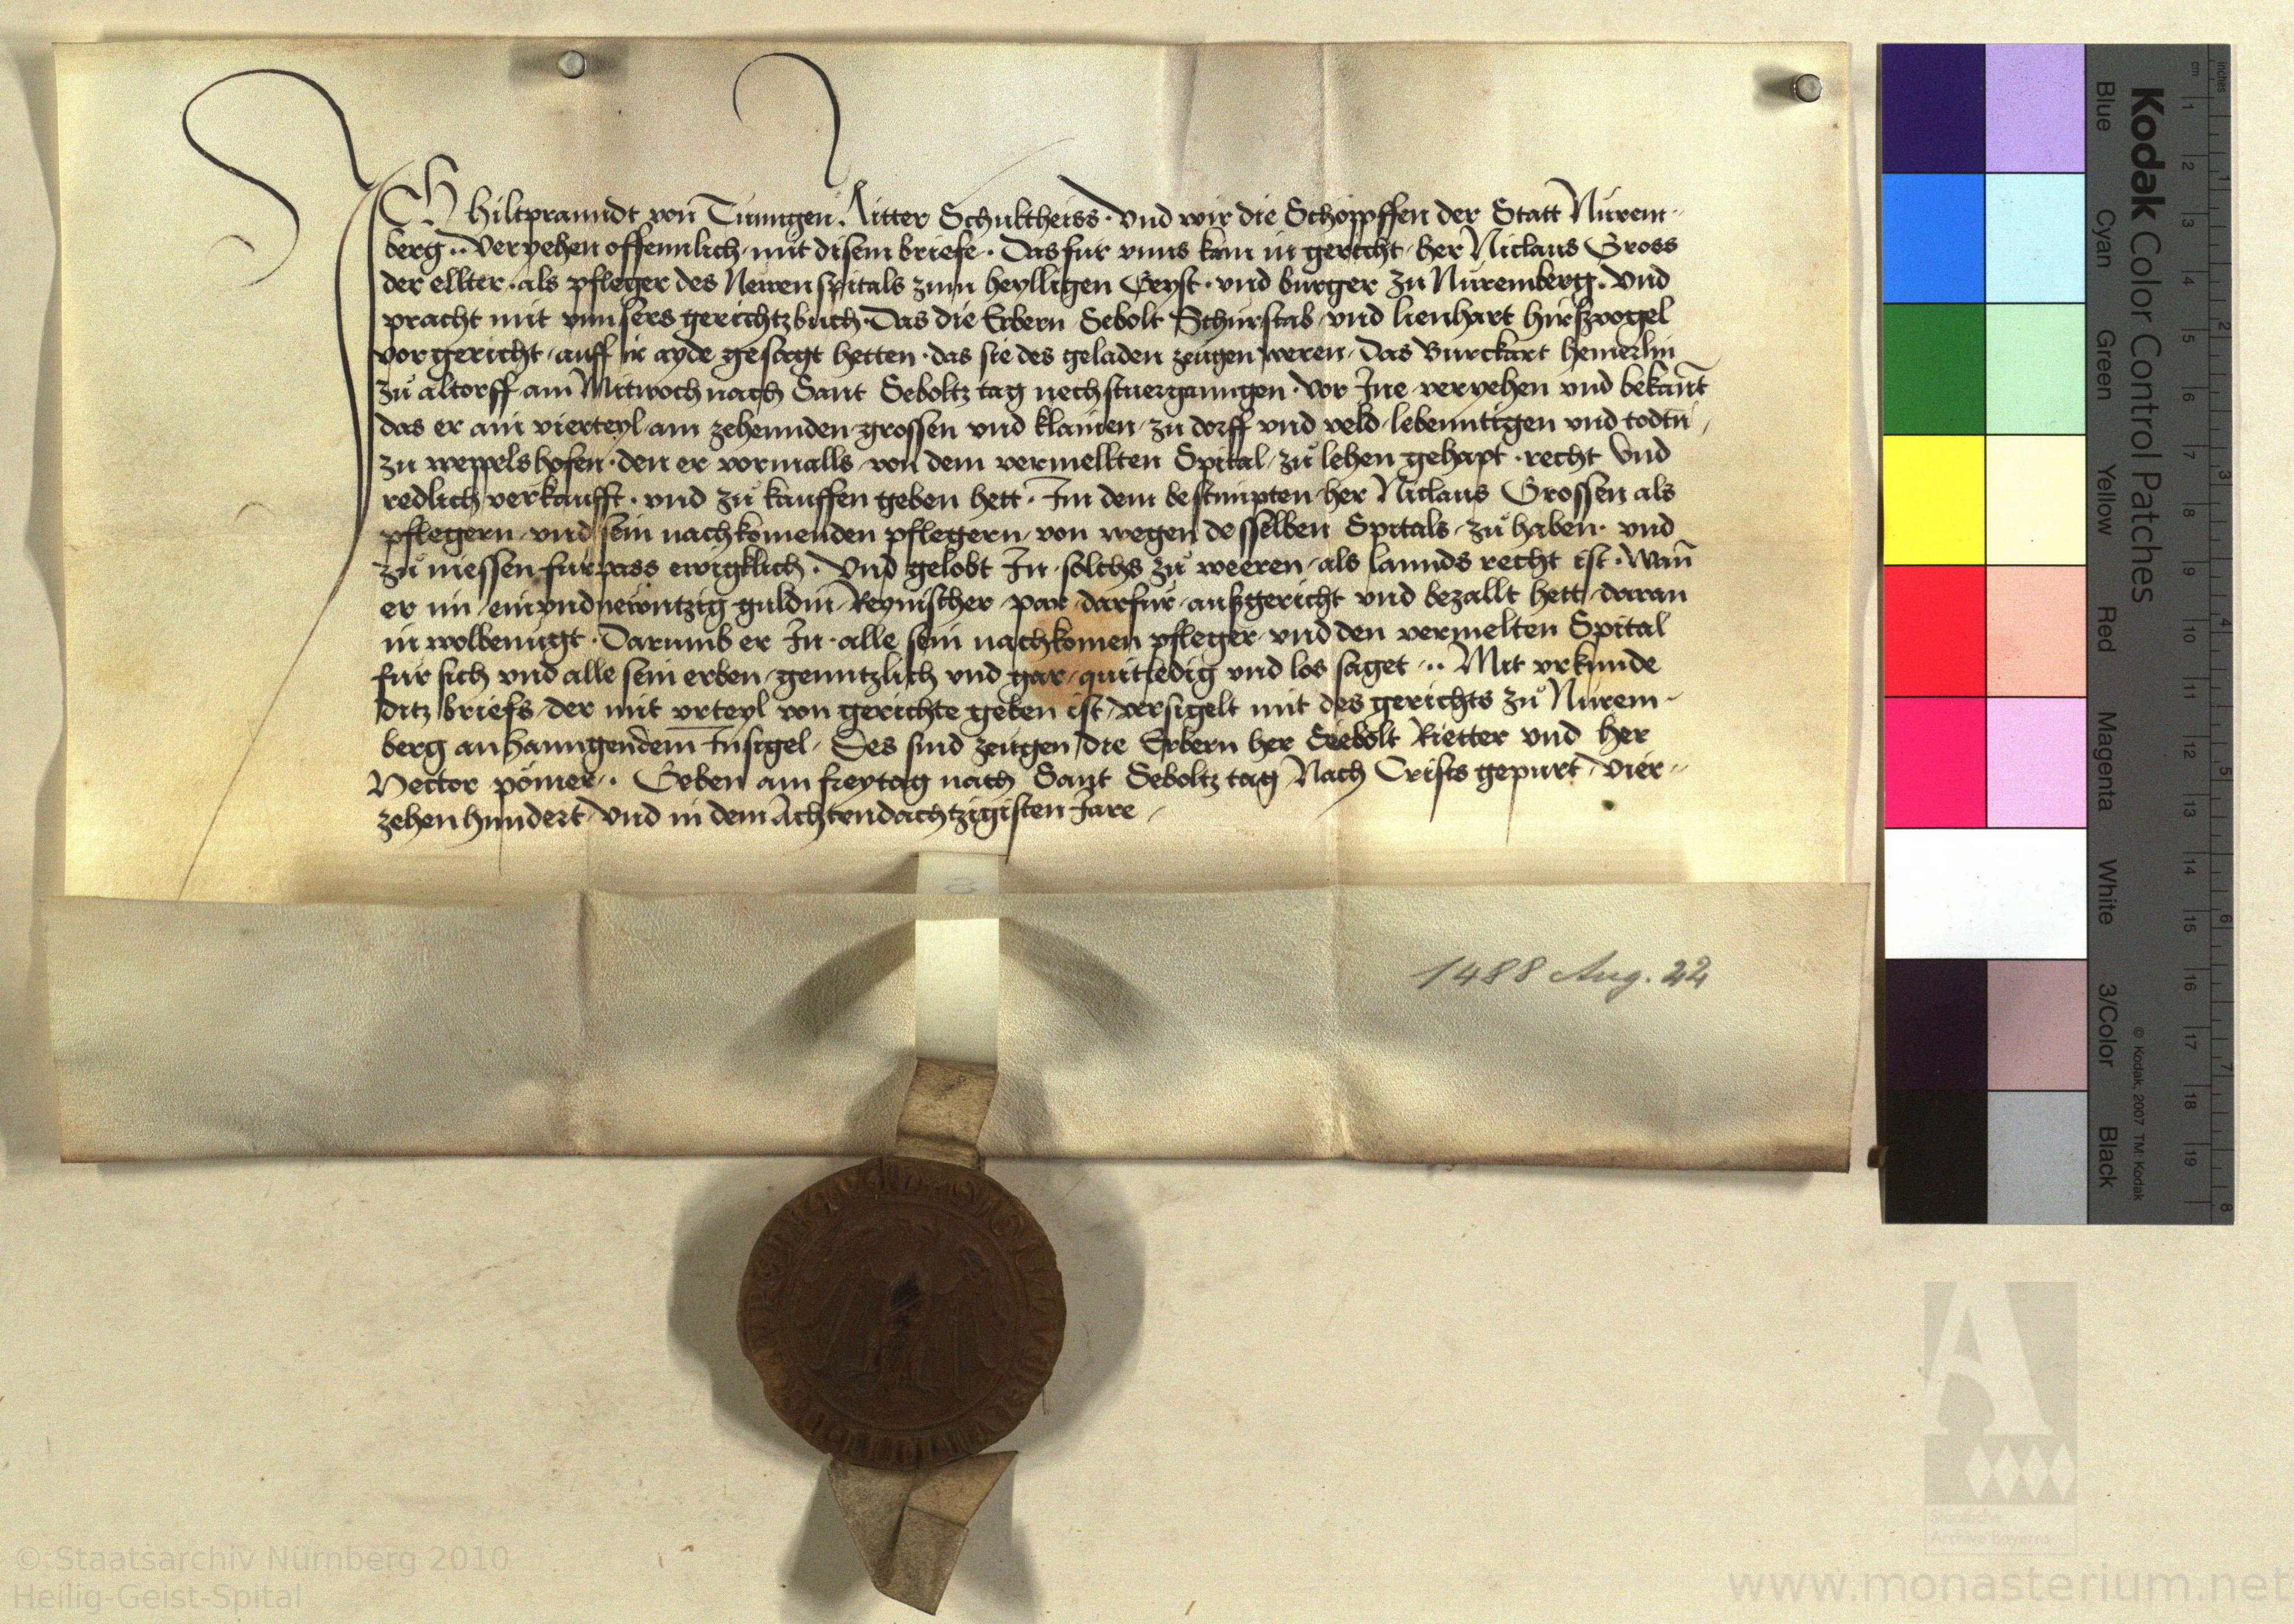 ICh hiltpranndt von Tunngen Ritter Schultheiss · Vnd wir die Schöpffen der Statt Nürem-
berg ·· Veryehen offennlich mit disem briefe · Das für vnns kam in gericht her Niclaus Gross
der ellter als pfleger des Newen spitals zum heylligen Geyst · vnd burger zu Nüremberg · Vnd
pracht mit vnnsers gerichtzbuch · Das die Erbern Sebolt Schürstab vnd lienhart hirßvogel
vor gericht auff ir ayde gesagt hetten · das sie des geladen zeugen weren · Das Burckart hemerlin
zů altorff am Mitwoch nach Sant Seboltz tag nechstuergangen · vor Ine veryehen vnd bekant
das er ain vierteyl am zehennden grossen vnd klainen zu dorff vnd veld lebenntigen vnd todtn
zu weppelshofen · den er vormalls von dem vermellten Spital zů lehen gehapt · recht Vnd
redlich verkaufft · vnd zů kauffen geben hett · Im dem bestimpten her Niclaus Grossen als
pflegern vnd sein nachkomenden pflegern von wegen desselben Spitals zů haben · vnd
zů niessen fürpass ewigklich · Vnd gelobt In solchs zů weeren als lannds recht ist · Wann
er im einvndnewntzig guldin Reynischer par darfür außgericht vnd bezallt hett daran
in wolbenügt · Darumb er In alle sein nachkomen pfleger vnd den vermelten Spital
für sich vnd alle sein erben genntzlich vnd gar quit ledig vnd los saget ·· Mit vrkunde
ditz briefs der mit vrteyl von gerichte geben ist versigelt mit des gerichts zů Nürem-
berg anhanngendem Insigel · Des sind zeugen die Erbern her Siebolt Rietter vnd her
Nector pömer · Geben am freytag nach Sant Seboltz tag Nach Crists gepurt vier-
zehenhundert vnd in dem Achtendachtzigisten Jare
1488 Aug. 22
Kodak Color Control Patches
Blue Cyan Green Yellow Red Magenta White 3/Color Black
© Kodak, 2007 TM: Kodak
cm 1 2 3 4 5 6 7 8 9 10 11 12 13 14 15 16 17 18 19
inches 1 2 3 4 5 6 7 8
Staatliche
Archive Bayerns
© Staatsarchiv Nürnberg 2010
Heilig-Geist-Spital
www.monasterium.net